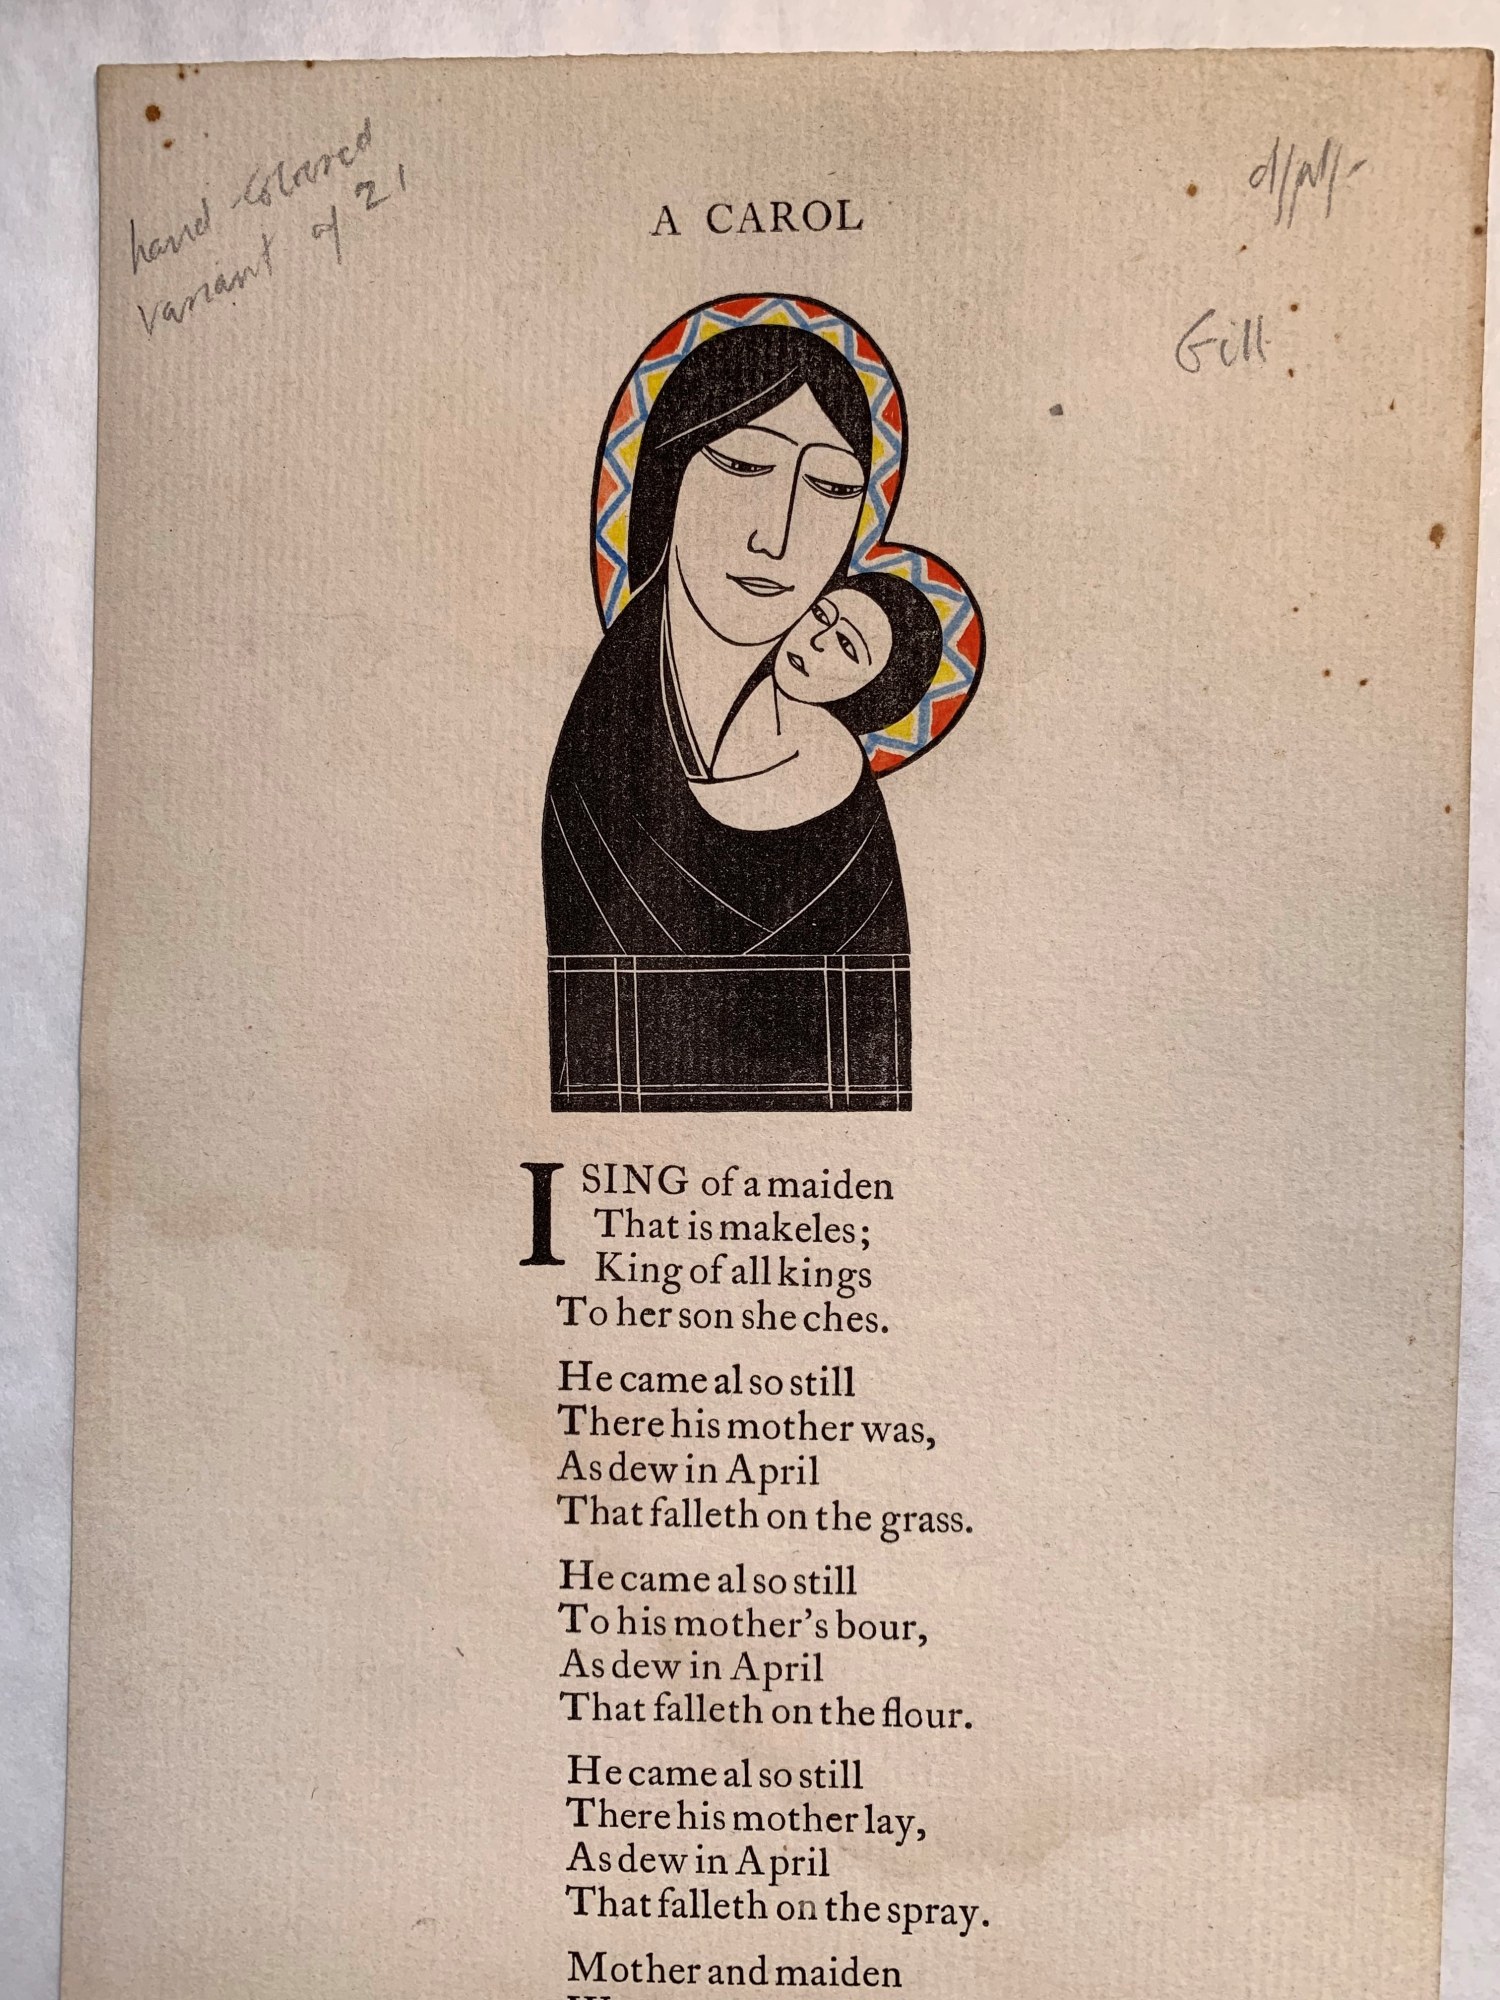 hand-coloured
variant of 21
A CAROL
Gill
I SING of a maiden
That is makeles;
King of all kings
To her son she ches.
He came al so still
There his mother was,
As dew in April
That falleth on the grass.
He came al so still
To his mother's bour,
As dew in April
That falleth on the flour.
He came al so still
There his mother lay,
As dew in April
That falleth on the spray.
Mother and maiden